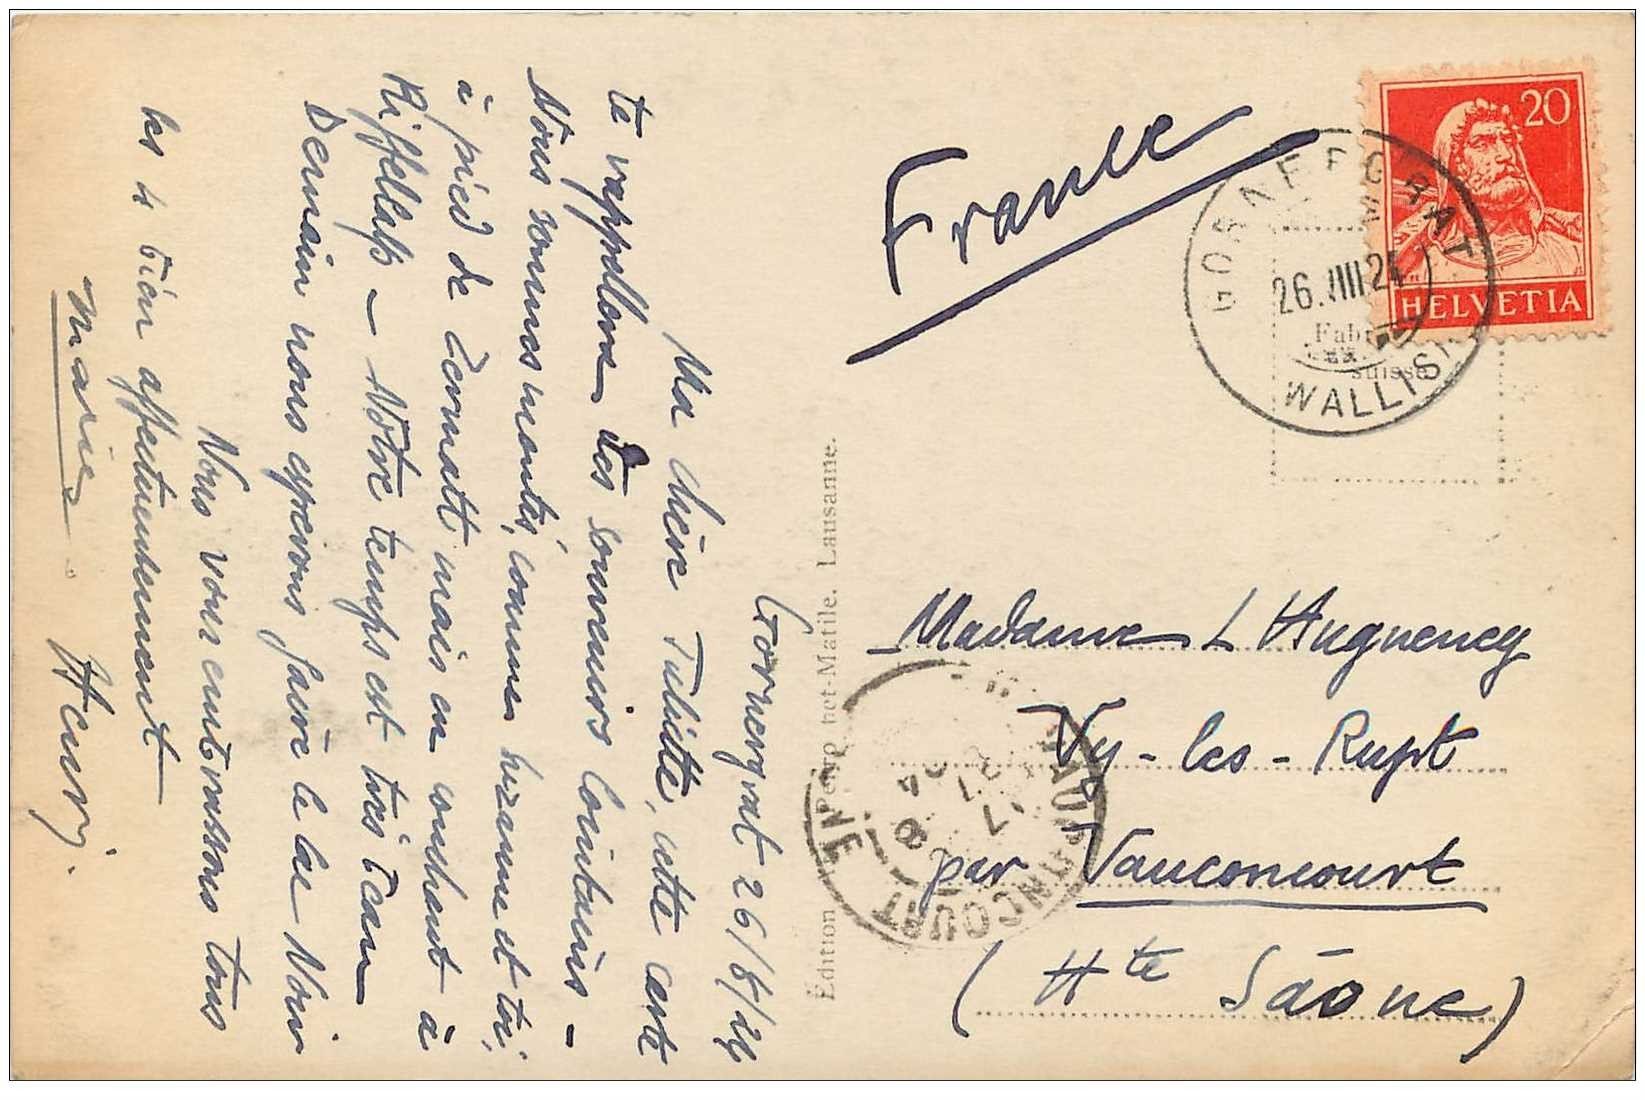 Gornergrat 26/8/24
Ma chère Juliette, cette carte
te rappellera des souvenirs lointains -
Nous sommes montés, comme Suzanne et toi,
à pied de Zermatt mais en couchant à
Riffelalp - Notre temps est très beau
Demain nous espérons faire le lac Noir
Nous vous embrassons tous
les 4 bien affectueusement
Marie Henri.
Édition Perrochet-Matile. Lausanne.
France
20
HELVETIA
GORNERGRAT
26.VIII 24
WALLIS
Fabr
suisse
Madame L Hugueney
Vy-les-Rupt
par Vauconcourt
(Hte Sâone)